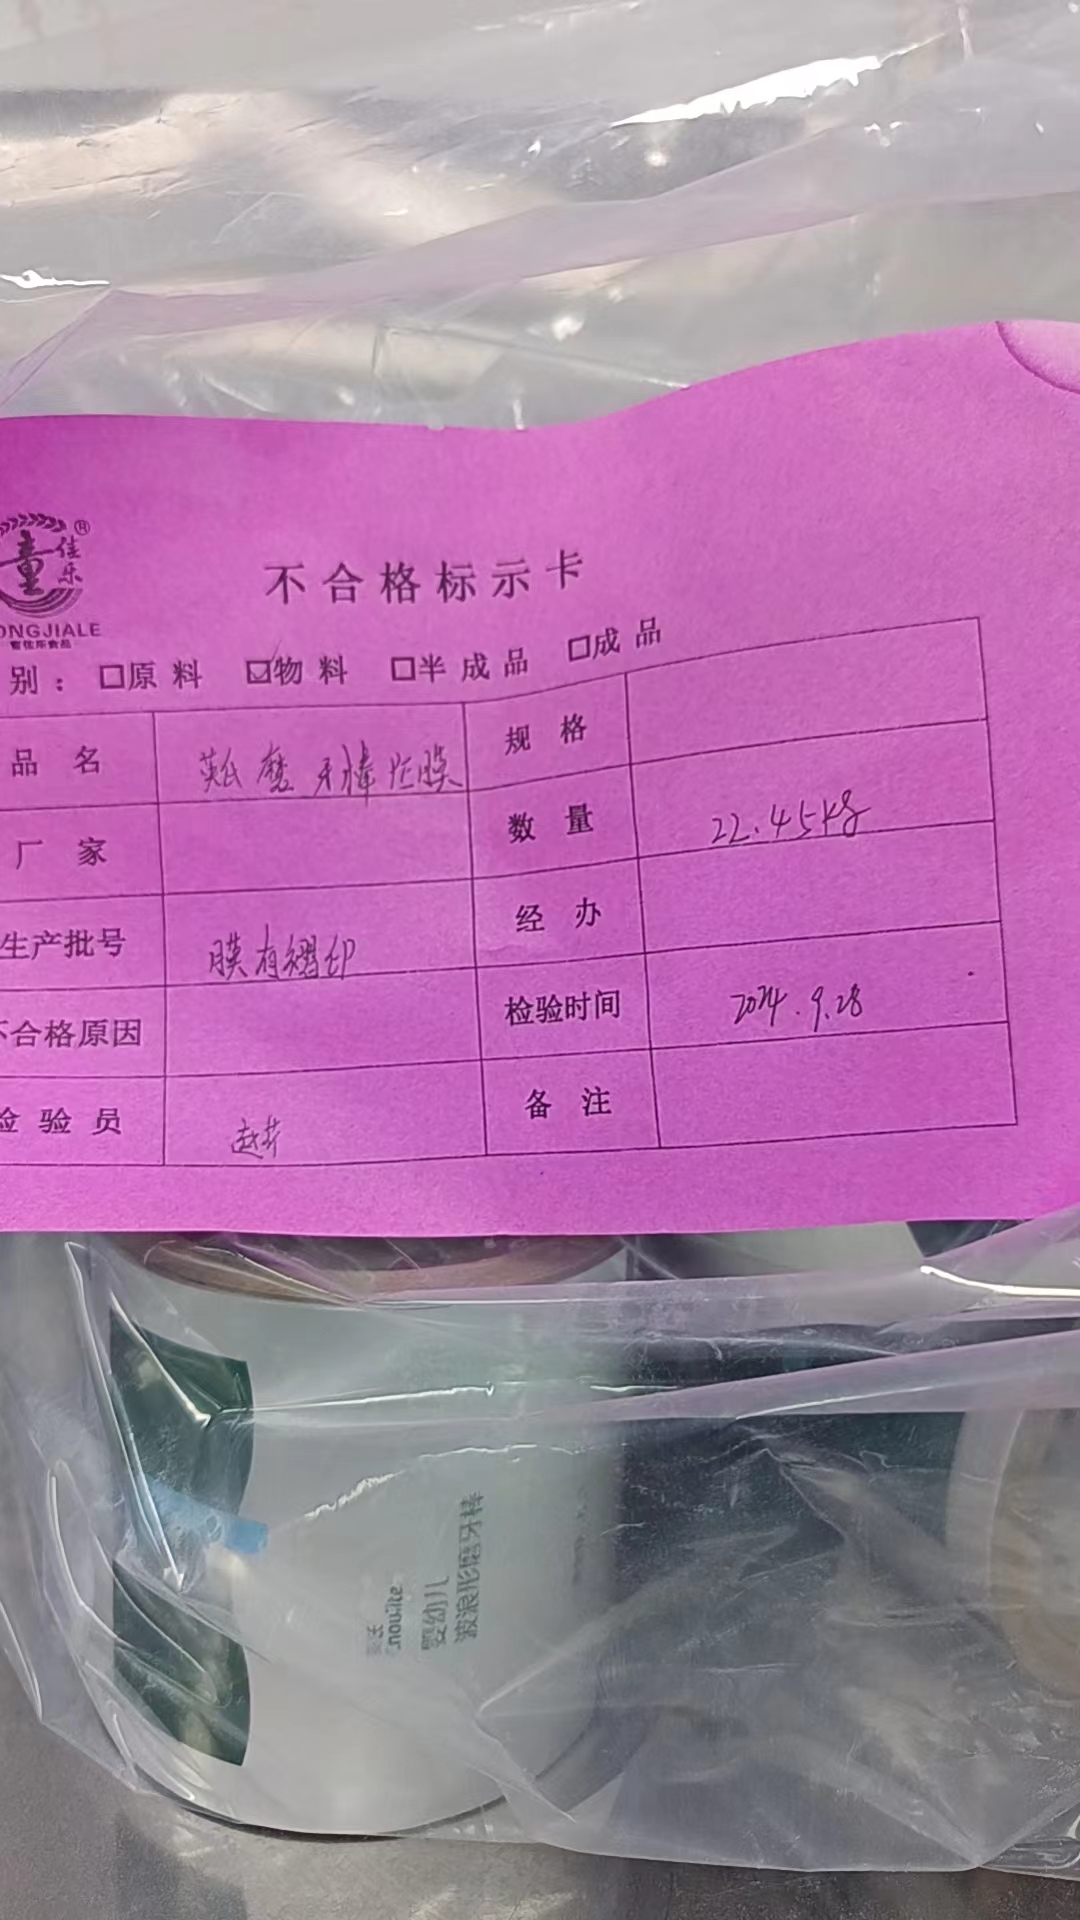 童佳乐®
ONGJIALE
童佳乐食品
不合格标示卡
别：☐原料 ☑物料 ☐半成品 ☐成品
品名 磨牙棒 膜 规格
厂家 数量 22.45kg
生产批号 膜有褶印 经办
不合格原因 检验时间 2024.9.28
检验员 备注
婴幼儿
波浪形磨牙棒